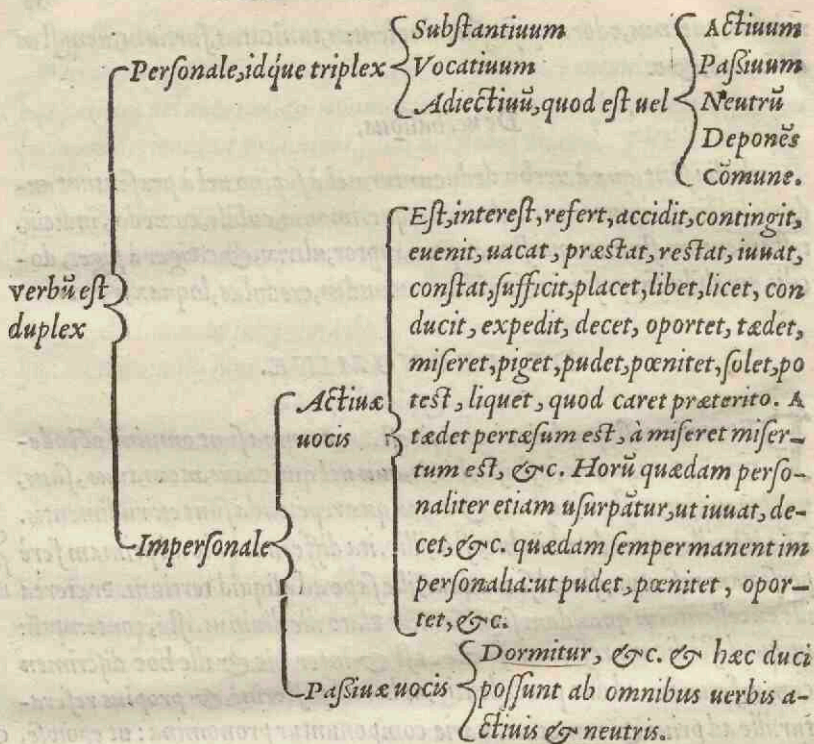 verbū est
duplex
Personale,idq́ue triplex
Substantiuum
Vocatiuum
Adiectiuū,quod est uel
Actiuum
Passiuum
Neutrū
Deponēs
Cōmune.
Impersonale
Actiuæ
uocis
Est,interest,refert,accidit,contingit,
euenit,uacat,præstat,restat,iuuat,
constat,sufficit,placet,libet,licet, con
ducit, expedit, decet, oportet, tædet,
miseret,piget,pudet,pœnitet,solet,po
test, liquet, quod caret præterito. A
tædet pertæsum est, à miseret miser-
tum est, &c. Horū quædam perso-
naliter etiam usurpātur,ut iuuat,de-
cet,&c. quædam semper manent im
personalia:ut pudet,pœnitet, opor-
tet,&c.
Passiuæ uocis
Dormitur, &c. & hæc duci
possunt ab omnibus uerbis a-
ctiuis & neutris.